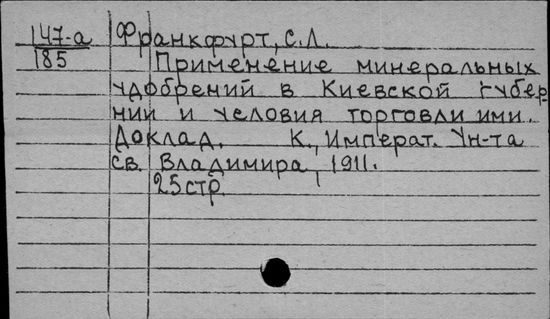 147-а Франкфурт, С.Л.
185 Применение минеральных
удобрений в Киевской губер
нии и условия торговли ими.
Доклад. К., Императ. Ун-та
св. Владимира, 1911.
25стр.